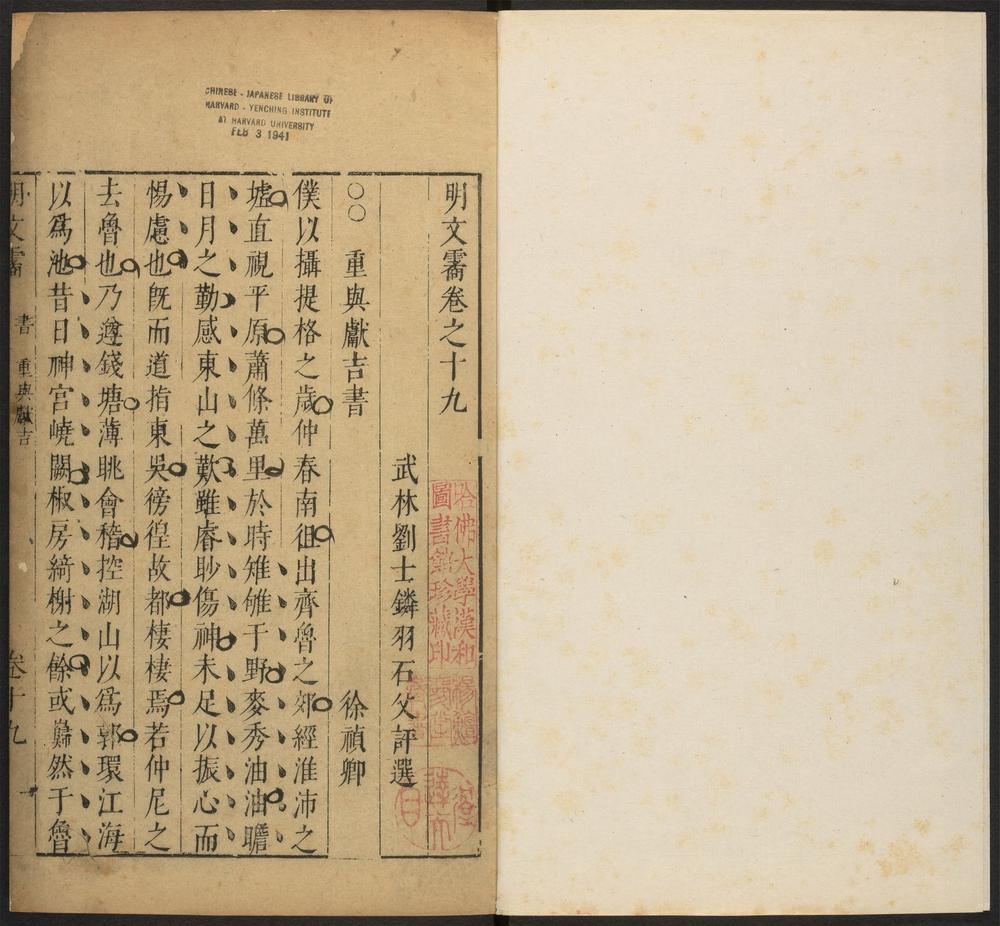 CHINESE - JAPANESE LIBRARY OF
HARVARD - YENCHING INSTITUTE
AT HARVARD UNIVERSITY
FEB 3 1941
明文霱卷之十九
武林劉士鏻羽石父評選
哈佛大學漢和
圖書館珍藏印
○○重與獻吉書
徐禎卿
僕以攝提格之歲仲春南徂出齊魯之郊經淮沛之
墟直視平原蕭條萬里於時雉雊于野麥秀油油瞻
日月之勤感東山之歎雖睿眇傷神未足以振心而
惕慮也旣而道指東吳徬徨故都棲棲焉若仲尼之
去魯也乃遵錢塘薄眺會稽控湖山以爲郭環江海
以爲池昔日神宮嶢闕椒房綺榭之餘或巋然于魯
明文霱
書
重與獻吉
卷十九
一